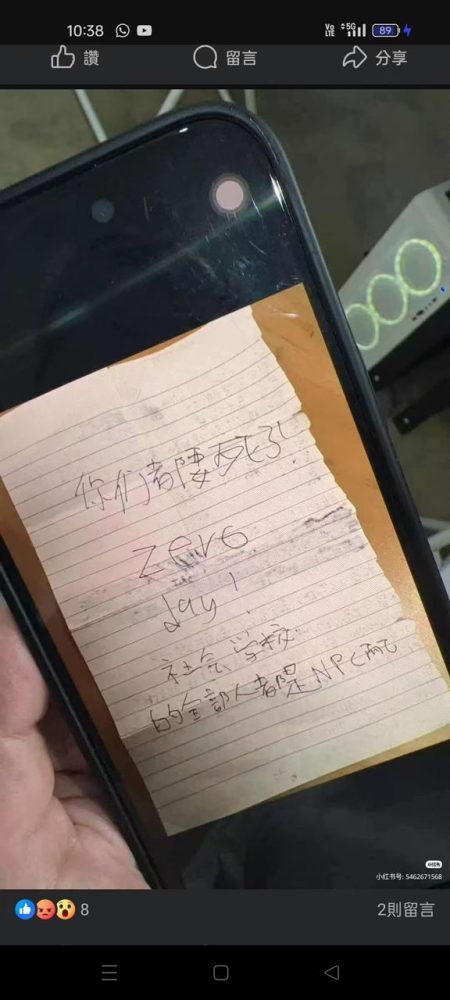 10:38
Vo
LTE
5G
89
讚
留言
分享
你们都要死了！
zero
day！
社会学校
的全部人都是NPC而已
小红书
小红书号: 5462671568
8
2則留言